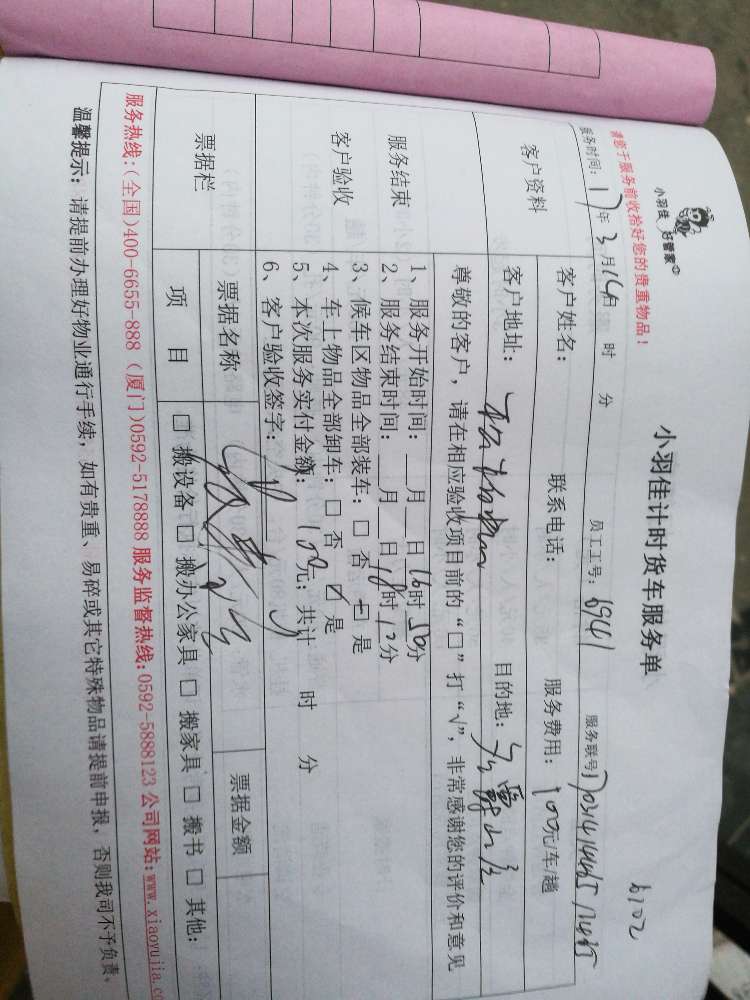 小羽佳 好管家
小羽佳计时货车服务单
6102
请您于服务前收拾好您的贵重物品！
服务时间：17年3月14日 时 分 员工工号：6941 服务联号
客户资料 客户姓名： 联系电话： 服务费用：100元/车/趟
客户地址： 目的地：
尊敬的客户，请在相应验收项目前的“□”打“√”，非常感谢您的评价和意见
服务结束
客户验收
1、服务开始时间： 月 日16时50分
2、服务结束时间： 月 日18时12分
3、候车区物品全部装车：□ 否 ☑ 是
4、车上物品全部卸车：□ 否 ☑ 是
5、本次服务实付金额：100元；共计 时 分
6、客户验收签字：
票据栏 票据名称 票据金额
项 目 □ 搬设备 □ 搬办公家具 □ 搬家具 □ 搬书 □ 其他：
服务热线:(全国)400-6655-888 (厦门)0592-5178888 服务监督热线:0592-5888123 公司网站:www.xiaoyujia.co
温馨提示：请提前办理好物业通行手续，如有贵重、易碎或其它特殊物品请提前申报，否则我司不予负责。